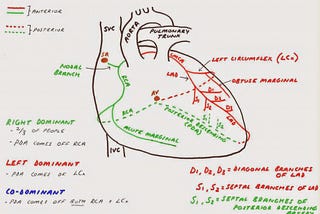 = ANTERIOR
= POSTERIOR
SVC
AORTA
PULMONARY
TRUNK
SA
NODAL
BRANCH
RCA
LMCA
LEFT CIRCUMFLEX (LCx)
LAD
OBTUSE MARGINAL
D1
D2
D3
S1
S2
LAD
AV
POSTERIOR
DESCENDING
(PDA)
RCA
ACUTE MARGINAL
IVC
RIGHT DOMINANT
- 2/3 OF PEOPLE
- PDA COMES OFF RCA
LEFT DOMINANT
- PDA COMES OF LCx
CO-DOMINANT
- PDA COMES OFF BOTH RCA + LCx
D1, D2, D3 = DIAGONAL BRANCHES
OF LAD
S1, S2 = SEPTAL BRANCHES OF LAD
S1, S2 = SEPTAL BRANCHES OF
POSTERIOR DESCENDING